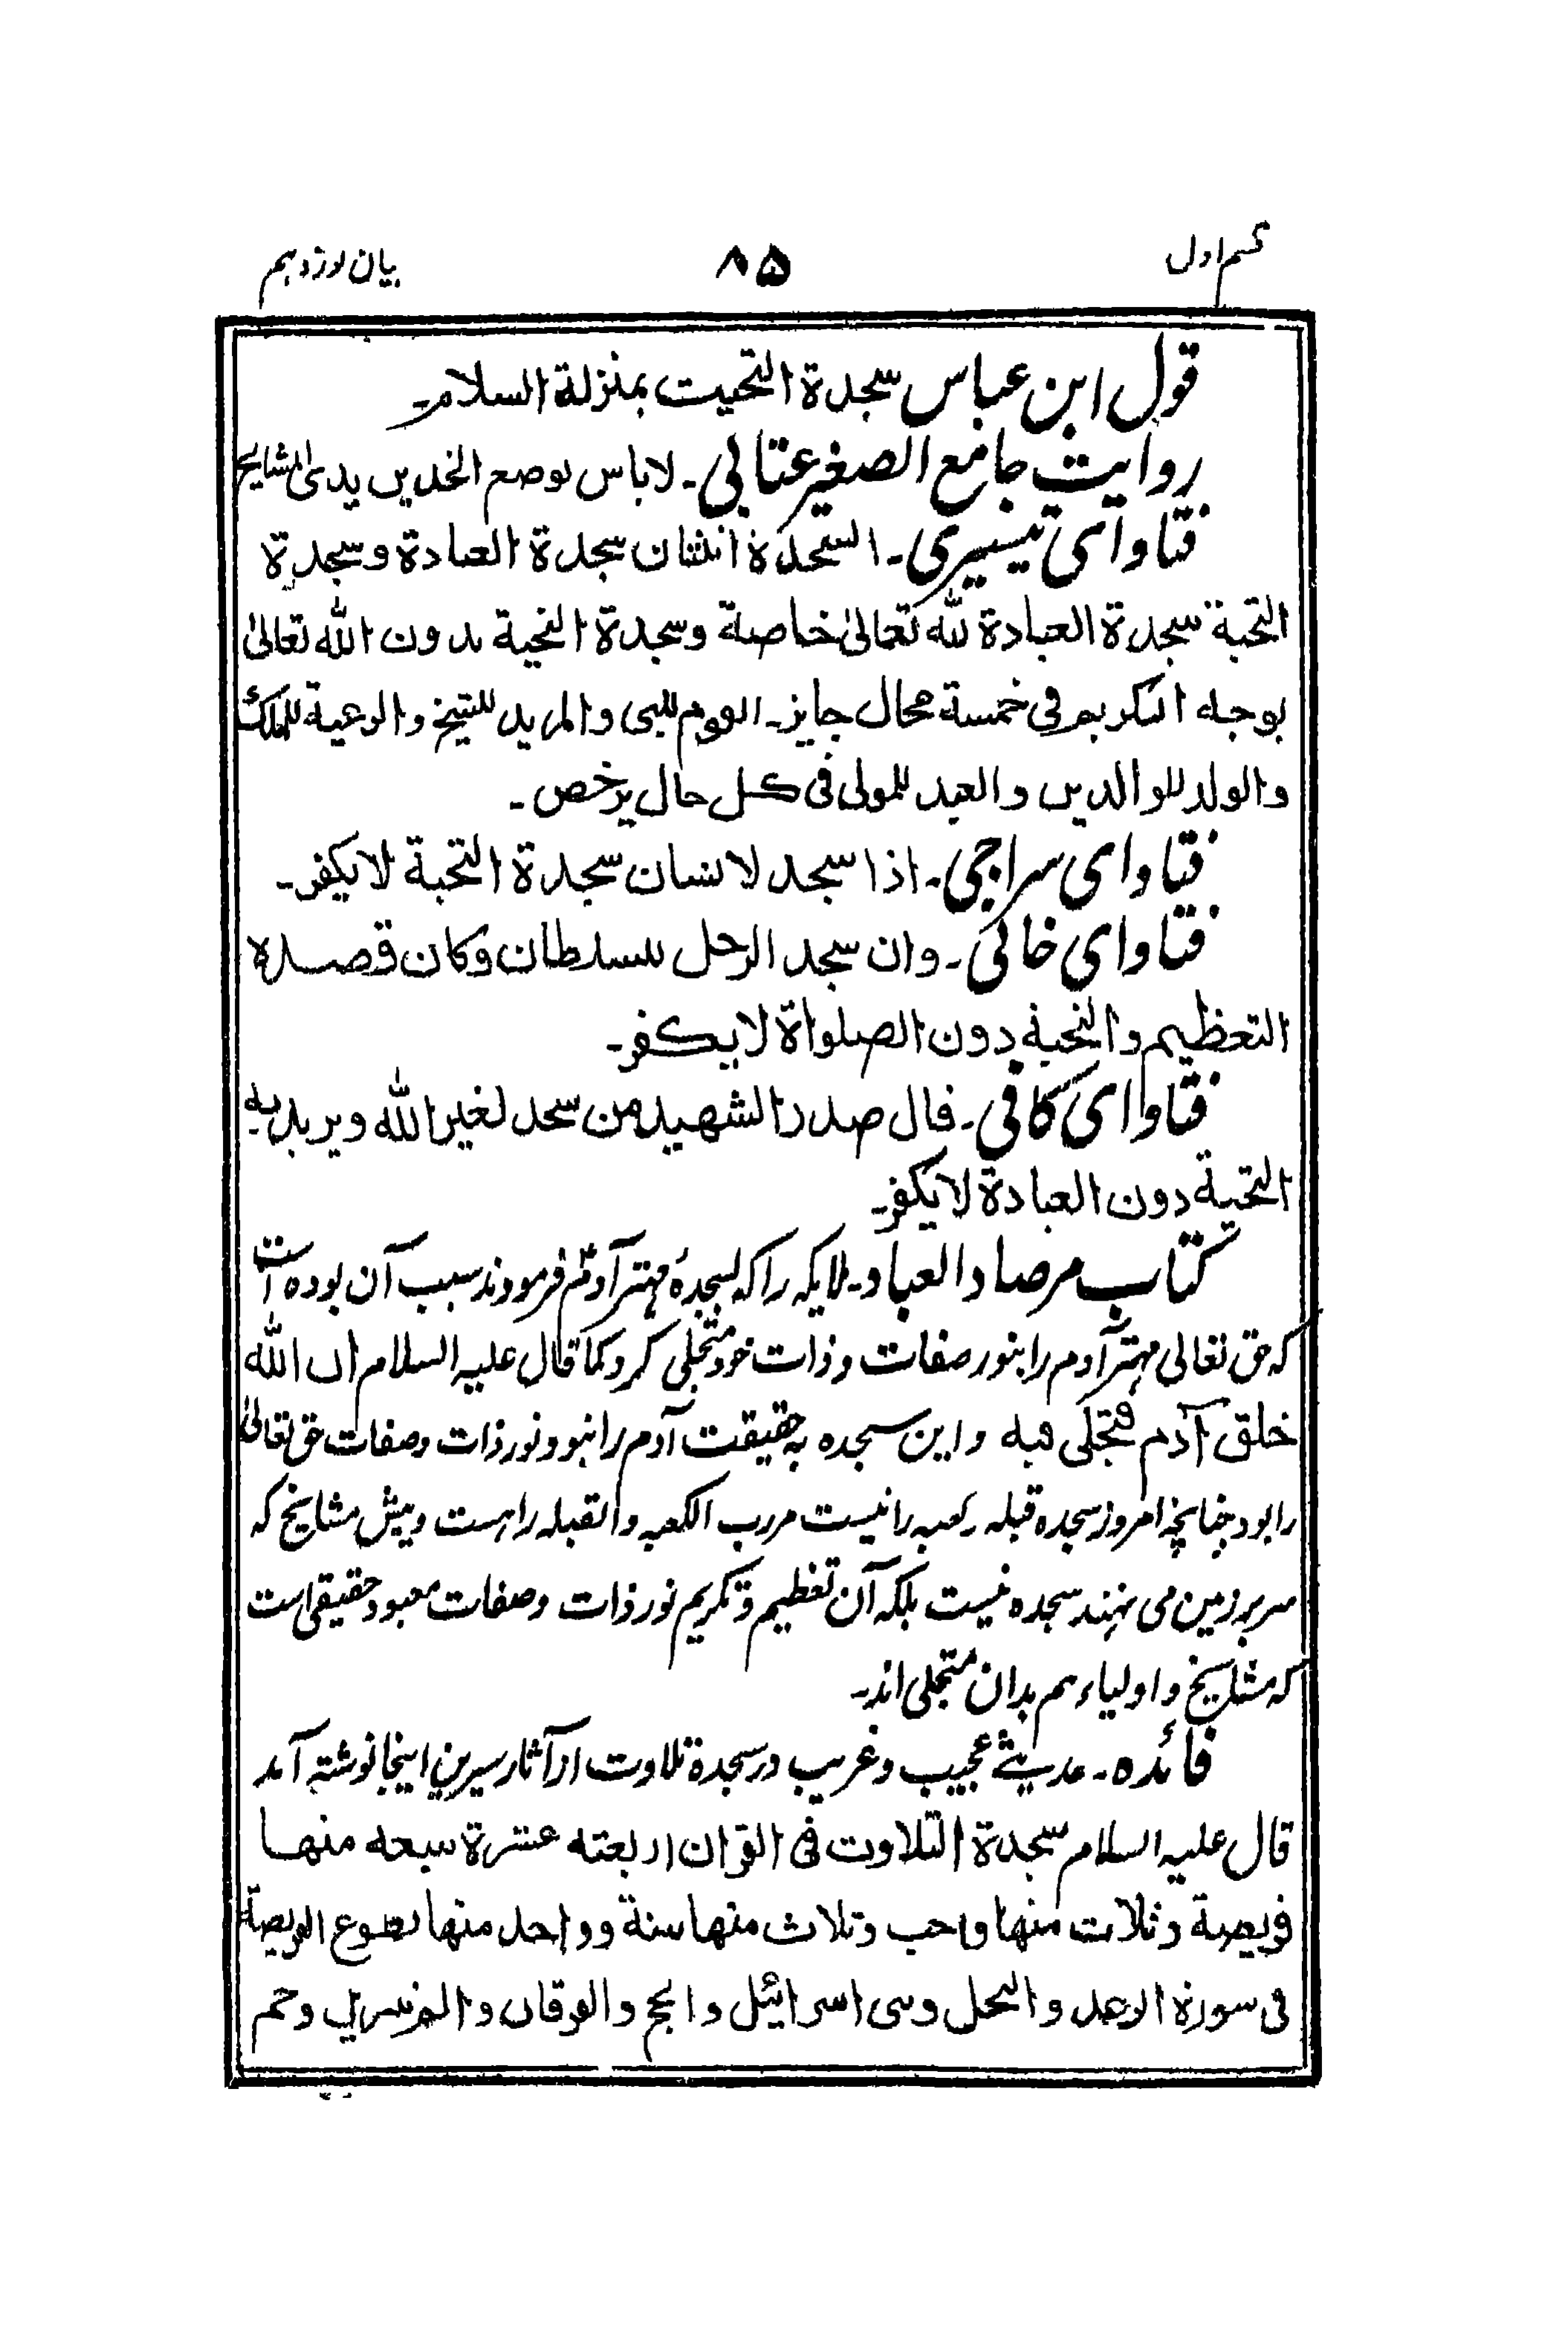 قسم اول ۸۵ بیان نوزدہم
قول ابن عباس سجدة التحیت بمنزلة السلام۔
روایت جامع الصغیر عتابی۔ لاباس بوضع الخدین یدی المشایخ
فتاوای تیسیری۔ السجدة اثنتان سجدة العبادة وسجدة
التحیة سجدة العبادة للّٰه تعالیٰ خاصة وسجدة التحیة بدون اللّٰه تعالیٰ
بوجه التکریم فی خمسة محال جایز۔ القوم للنبی والمرید للشیخ والرعیة للملك
والولد للوالدین والعبد للمولی فی کل حال یرخص۔
فتاوای سراجی۔ اذا سجد لانسان سجدة التحیة لا یکفر۔
فتاوای خانی۔ وان سجد الرجل للسلطان وکان قصده
التعظیم والتحیة دون الصلواة لا یکفر۔
فتاوای کافی۔ قال صدر الشهید من سجد لغیر اللّٰه ویرید به
التحیة دون العبادة لا یکفر۔
کتاب مرصاد العباد۔ ملایکہ را کہ بسجدۂ مہتر آدم فرمودند سبب آن بودہ است
کہ حق تعالی مہتر آدم را بنور صفات و ذات خود متجلی کرد کما قال علیہ السلام ان اللّٰه
خلق آدم فتجلی فیه و این سجدہ بہ حقیقت آدم را نبود نور ذات و صفات حق تعالیٰ
را بود چنانچہ امروز سجدہ قبلہ کعبہ را نیست مر رب الکعبہ والقبلہ راہست و پیش مشایخ کہ
سر بر زمین می نہند سجدہ نیست بلکہ آن تعظیم و تکریم نور ذات و صفات معبود حقیقی است
کہ مشایخ و اولیاء ہم بدان متجلی اند۔
فائدہ۔ حدیثے عجیب و غریب در سجدة تلاوت از آثار سیرین اینجا نوشتہ آمد
قال علیہ السلام سجدة التلاوت فی القران اربعته عشرة سبعه منها
فریضة وثلاث منها واجب وثلاث منها سنة وواحد منها تطوع الفریضة
فی سورة الرعد والنحل وبنی اسرائیل والحج والفرقان والم تنزیل وحم